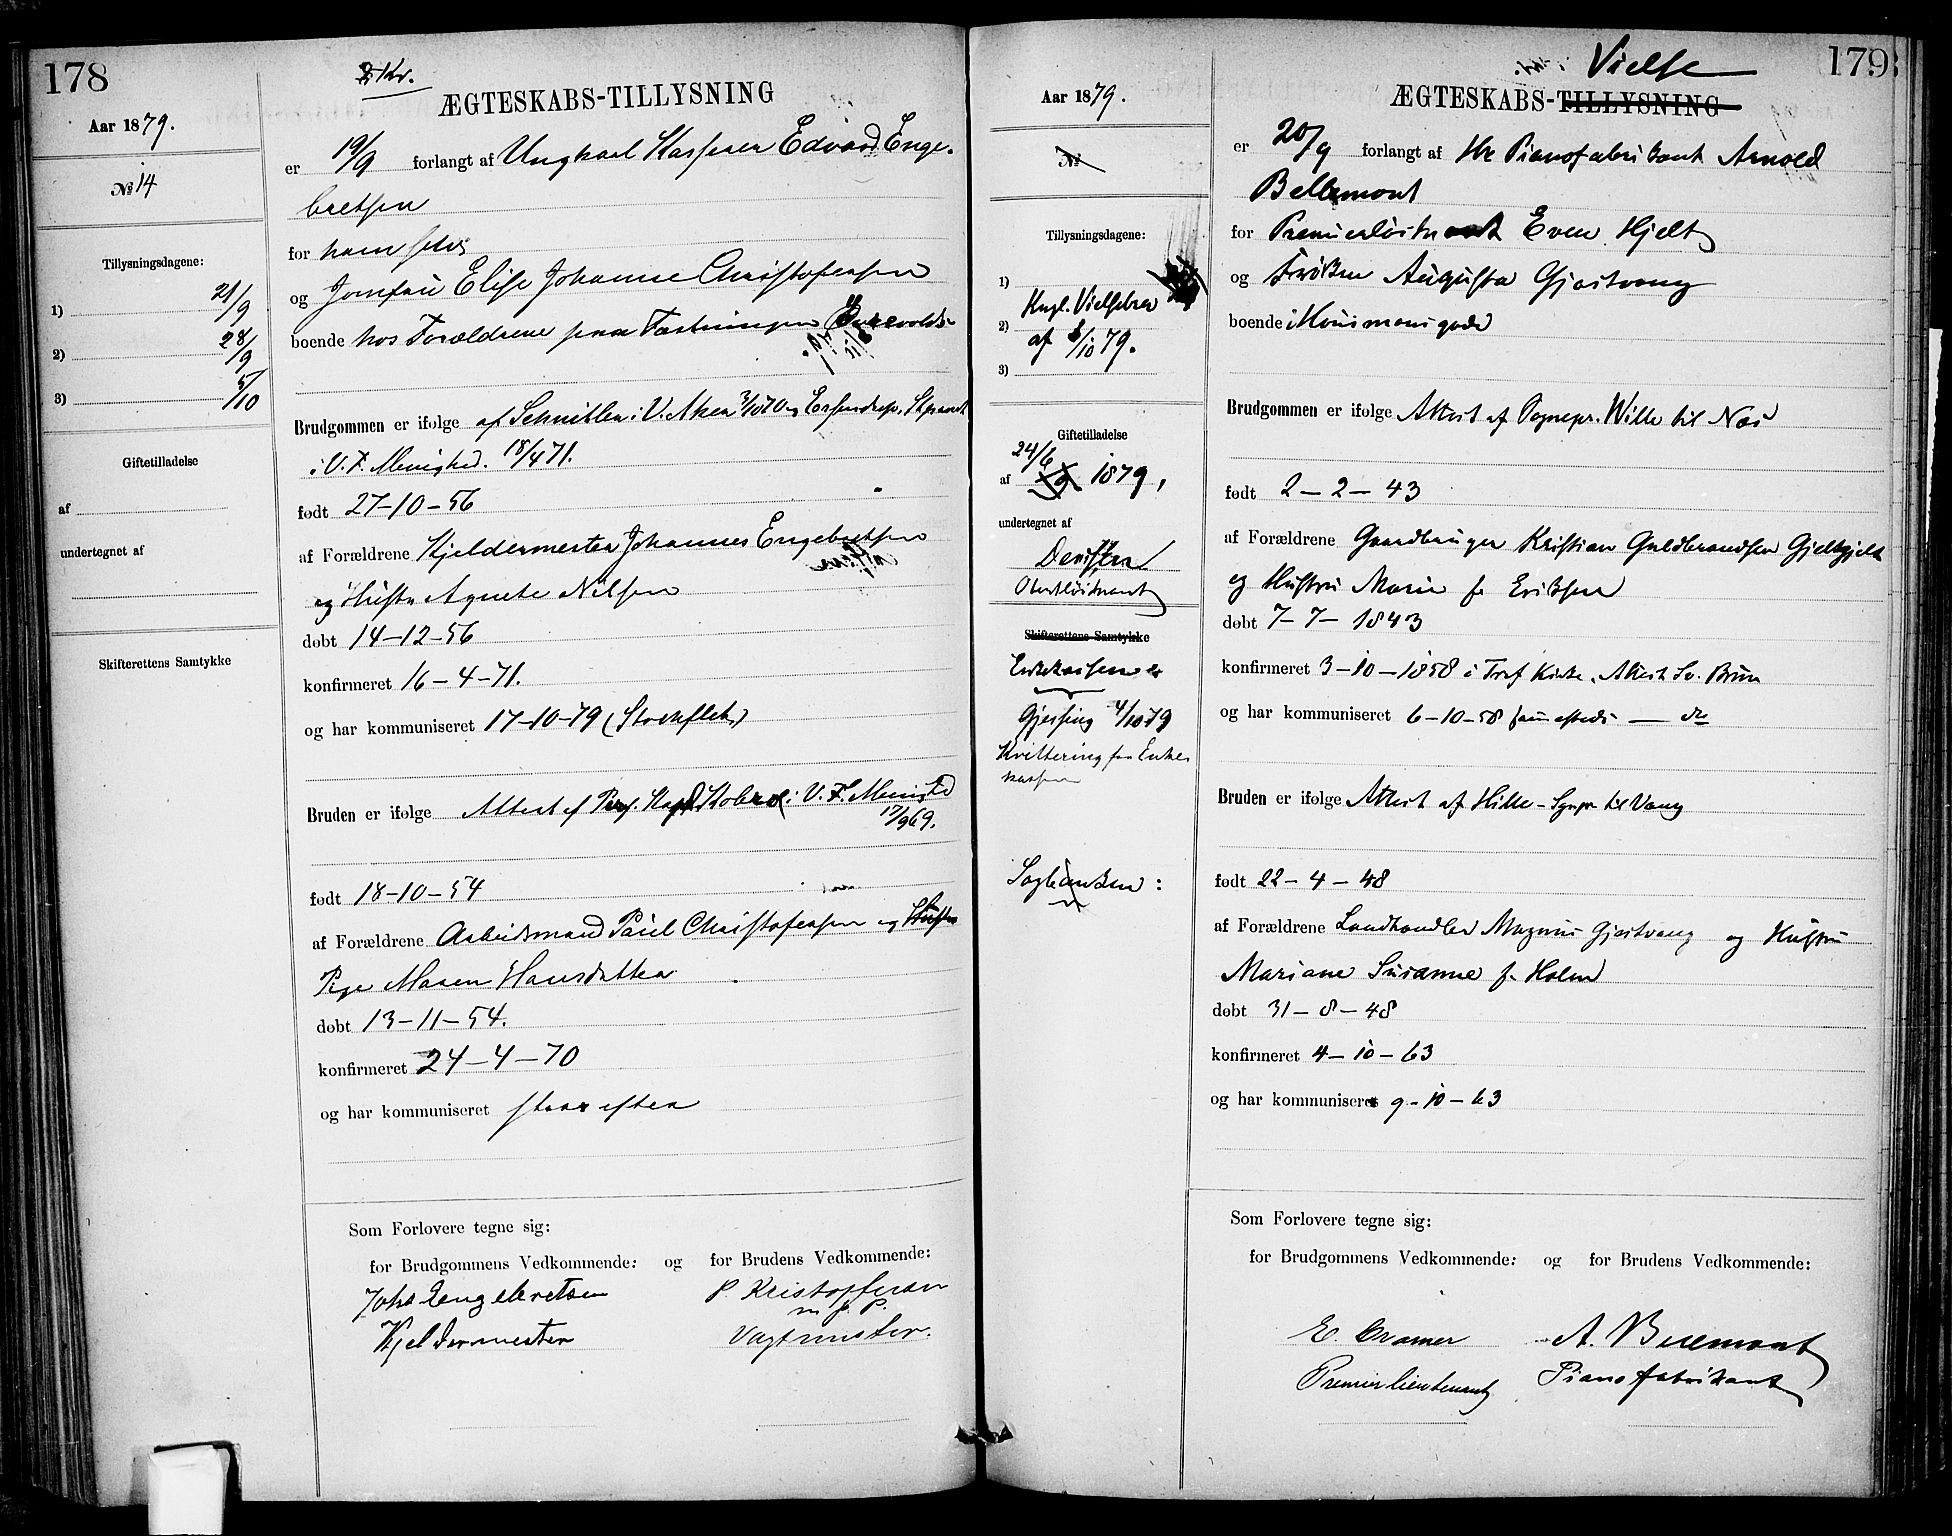 178
2 Kr.
ÆGTESKABS-TILLYSNING
Aar 1879.
№ 14
Tillysningsdagene:
1) 21/9
2) 28/9
3) 5/10
Giftetilladelse
af
undertegnet af
Skifterettens Samtykke
er 19/9 forlangt af Ungkarl Edvard Enge-
bretsen
for ham selv
og Jomfru Elise Johanne Christofersen
boende hos Forældrene paa Fæstningen
Brudgommen er ifølge af Schnitler i V. Aker 3/10 70 og
i V. F. Menighed. 18/4 71.
født 27-10-56
af Forældrene Kjeldermester Johannes Engebretsen
og Hustru Agnete Nilsen
døbt 14-12-56
konfirmeret 16-4-71.
og har kommuniseret 17-10-79 (Stockfleth)
Bruden er ifølge Attest af i V. F. Menighed
17/9 69.
født 18-10-54
af Forældrene Arbeidsmand Paul Christofersen og
Pige Maren Hansdatter
døbt 13-11-54.
konfirmeret 24-4-70
og har kommuniseret staar efter
Som Forlovere tegne sig:
for Brudgommens Vedkommende: og for Brudens Vedkommende:
Johs Engebretsen P. Kristoffersen
m. p. P.
Kjeldermester Vagtmester.
179
Vielse
ÆGTESKABS-TILLYSNING
Aar 1879.
№
Tillysningsdagene:
1)
Kngl. Vielsebrev
2)
af 3/10 79.
3)
Giftetilladelse
24/6
af 1879,
undertegnet af
Oberstløitnant
Skifterettens Samtykke
Enkekassen
Gjessing 4/10 79
Kvittering fra Enke
kassen
er 20/9 forlangt af Hr Pianofabrikant Arnold
Bellemont
for Premierløitnant Even Hjelt
og Frøken Augusta Gjestvang
boende i Housmansgade
Brudgommen er ifølge Attest af Sognepr. Wille til Næs
født 2-2-43
af Forældrene Gaardbruger Kristian Guldbrandsen
og Hustru Marie f. Eriksen
døbt 7-7-1843
konfirmeret 3-10-1858 i Kirke, Attest Sv. Brun
og har kommuniseret 6-10-58 sammesteds — do
Bruden er ifølge Attest af Hille - Sgnpr til Vang
født 22-4-48
af Forældrene Landhandler Magnus Gjestvang og Hustru
Mariane Susanne f. Holm
døbt 31-8-48
konfirmeret 4-10-63
og har kommuniseret 9-10-63
Som Forlovere tegne sig:
for Brudgommens Vedkommende: og for Brudens Vedkommende:
E. Cramer A. Bellemont
Premierlieutenant Pianofabrikant